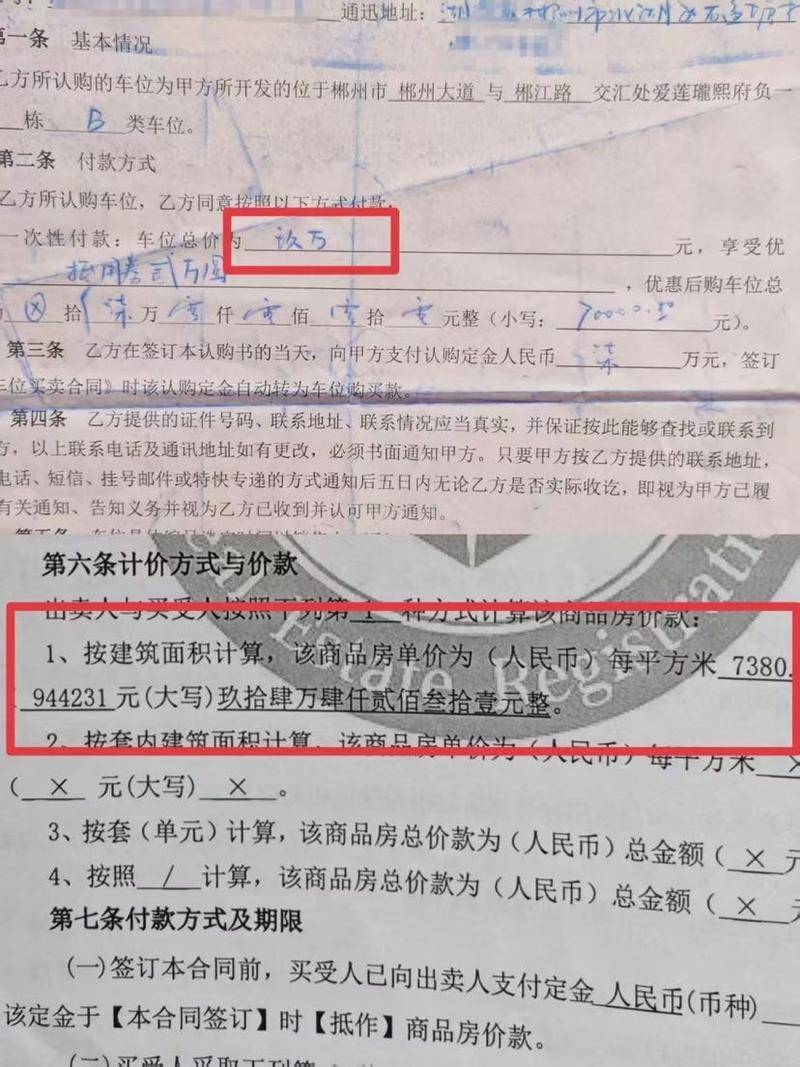 通迅地址：湖
第一条 基本情况
乙方所认购的车位为甲方所开发的位于郴州市 郴州大道 与 郴江路 交汇处爱莲瓏熙府负一
栋 B 类车位。
第二条 付款方式
乙方所认购车位，乙方同意按照以下方式付款：
一次性付款：车位总价为 玖万 元，享受优
抵用券弍万圆 ，优惠后购车位总
⊗ 拾 柒 万 零 仟 零 佰 零 拾 零 元整（小写： 70000.00 元）。
第三条 乙方在签订本认购书的当天，向甲方支付认购定金人民币 柒 万元，签订
车位买卖合同》时该认购定金自动转为车位购买款。
第四条 乙方提供的证件号码、联系地址、联系情况应当真实，并保证按此能够查找或联系到
方，以上联系电话及通讯地址如有更改，必须书面通知甲方。只要甲方按乙方提供的联系地址，
电话、短信、挂号邮件或特快专递的方式通知后五日内无论乙方是否实际收讫，即视为甲方已履
有关通知、告知义务并视为乙方已收到并认可甲方通知。
第六条计价方式与价款
出卖人与买受人按照下列第 1 种方式计算该商品房价款：
1、按建筑面积计算，该商品房单价为（人民币）每平方米 7380.
944231 元(大写)玖拾肆万肆仟贰佰叁拾壹元整。
2、按套内建筑面积计算，该商品房单价为（人民币）每平方米 ×
（ × 元(大写) × 。
3、按套（单元）计算，该商品房总价款为（人民币）总金额（ × 元
4、按照 / 计算，该商品房总价款为（人民币）总金额（ × 元
第七条付款方式及期限
(一)签订本合同前，买受人已向出卖人支付定金 人民币(币种)
该定金于【本合同签订】时【抵作】商品房价款。
(二)买受人采取下列第
Estate Registrati